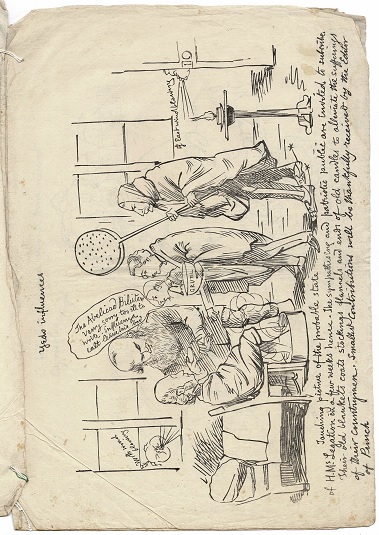 Yedo influences
The
very
influence
GRUEL
of East wind leaving
Touching picture of the probable state
of H.M's Legation in a few weeks hence. The sympathising and patriotic public are invited to subscribe
Their old blankets coats stockings flannels and ends of old candles to alleviate the sufferings
of their countrymen. Smallest Contributions will be thankfully received by the Editor
of Punch